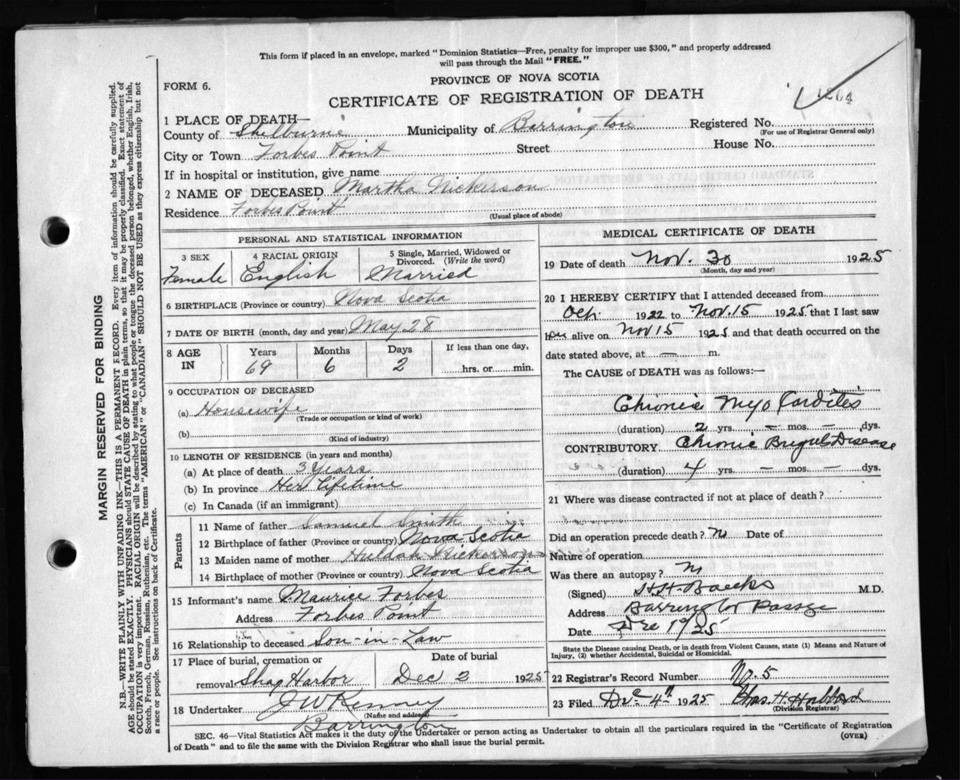 This form if placed in an envelope, marked " Dominion Statistics—Free, penalty for improper use $300," and properly addressed
will pass through the Mail "FREE."
FORM 6.
PROVINCE OF NOVA SCOTIA
CERTIFICATE OF REGISTRATION OF DEATH
1 PLACE OF DEATH—
County of Shelburne Municipality of Barrington Registered No.
(For use of Registrar General only)
City or Town Forbes Point Street House No.
If in hospital or institution, give name
2 NAME OF DECEASED Martha Nickerson
Residence Forbes Point
(Usual place of abode)
PERSONAL AND STATISTICAL INFORMATION
3 SEX 4 RACIAL ORIGIN 5 Single, Married, Widowed or
Divorced. (Write the word)
Female English Married
6 BIRTHPLACE (Province or country) Nova Scotia
7 DATE OF BIRTH (month, day and year) May 28
8 AGE IN Years Months Days If less than one day,
69 6 2 hrs. or min.
9 OCCUPATION OF DECEASED
(a) Housewife
(Trade or occupation or kind of work)
(b)
(Kind of industry)
10 LENGTH OF RESIDENCE (in years and months)
(a) At place of death 3 Years
(b) In province Her Lifetime
(c) In Canada (if an immigrant)
Parents
11 Name of father Samuel Smith
12 Birthplace of father (Province or country) Nova Scotia
13 Maiden name of mother Huldah Nickerson
14 Birthplace of mother (Province or country) Nova Scotia
15 Informant's name Maurice Forbes
Address Forbes Point
16 Relationship to deceased Son-in-Law
17 Place of burial, cremation or Date of burial
removal Shag Harbor Dec 2 1925
18 Undertaker J W Kenney
(Name and address)
Barrington
MEDICAL CERTIFICATE OF DEATH
19 Date of death Nov. 30 1925
(Month, day and year)
20 I HEREBY CERTIFY that I attended deceased from
Oct. 1922 to Nov. 15 1925 that I last saw
alive on Nov 15 1925 and that death occurred on the
date stated above, at — m.
The CAUSE of DEATH was as follows:—
Chronic Myocarditis
(duration) 2 yrs. — mos. — dys.
CONTRIBUTORY Chronic Brights Disease
(duration) 4 yrs. — mos. — dys.
21 Where was disease contracted if not at place of death?
Did an operation precede death? N Date of
Nature of operation
Was there an autopsy? N
(Signed) M.D.
Address Barrington Passage
Date Dec 1st 25
State the Disease causing Death, or in death from Violent Causes, state (1) Means and Nature of
Injury, (2) whether Accidental, Suicidal or Homicidal.
22 Registrar's Record Number No. 5
23 Filed Dec 4th 1925 Chas. H.
(Division Registrar)
SEC. 46—Vital Statistics Act makes it the duty of the Undertaker or person acting as Undertaker to obtain all the particulars required in the "Certificate of Registration
of Death" and to file the same with the Division Registrar who shall issue the burial permit. (OVER)
MARGIN RESERVED FOR BINDING
N.B.—WRITE PLAINLY WITH UNFADING INK—THIS IS A PERMANENT RECORD. Every item of information should be carefully supplied.
AGE should be stated EXACTLY. PHYSICIANS should STATE CAUSE OF DEATH in plain terms, so that it may be properly classified. Exact statement of
OCCUPATION is very important. RACIAL ORIGIN will be described by stating to what people or tongue the deceased person belonged, whether English, Irish,
Scotch, French, German, Russian, Ruthenian, etc. The terms "AMERICAN" or "CANADIAN" SHOULD NOT BE USED as they express citizenship but not
a race or people. See instructions on back of Certificate.